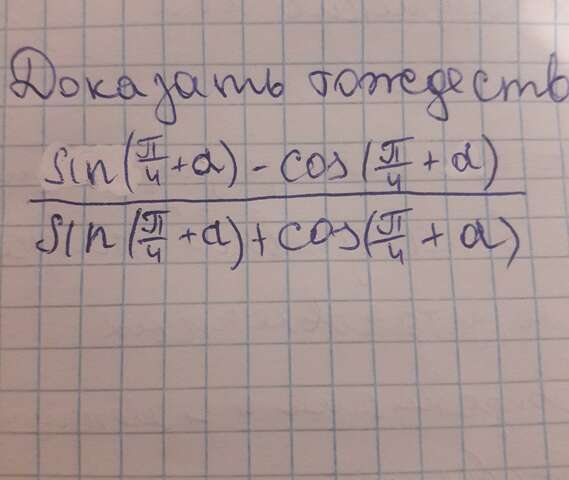 Доказать тождеств
sin(π/4 + α) - cos(π/4 + α)
sin(π/4 + α) + cos(π/4 + α)